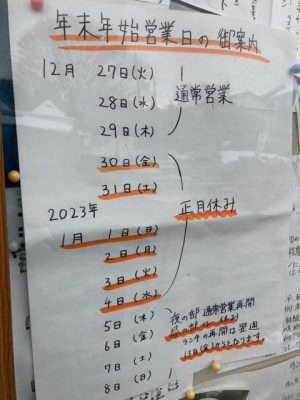 年末年始営業日の御案内
12月 27日(火)
28日(水) 通常営業
29日(木)
30日(金)
31日(土)
2023年 正月休み
1月 1日(日)
2日(月)
3日(火)
4日(水)
5日(木) 夜の部 通常営業再開
昼の部は、休み
6日(金) ランチの再開は翌週
13日(金)からとなります。
7日(土)
8日(日)